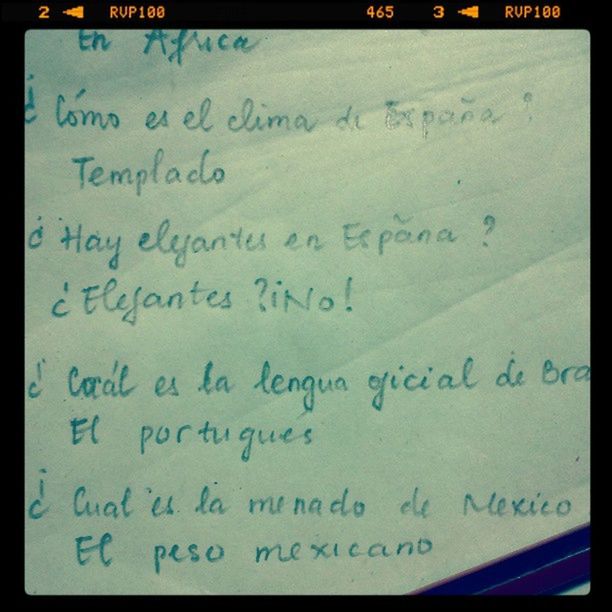 2 RVP100 465 3 RVP100
En Africa
¿Cómo es el clima de España?
Templado
¿Hay elefantes en España?
¿Elefantes?¡No!
¿Cuál es la lengua oficial de Bra
El portugués
¿Cual es la menado de Mexico
El peso mexicano